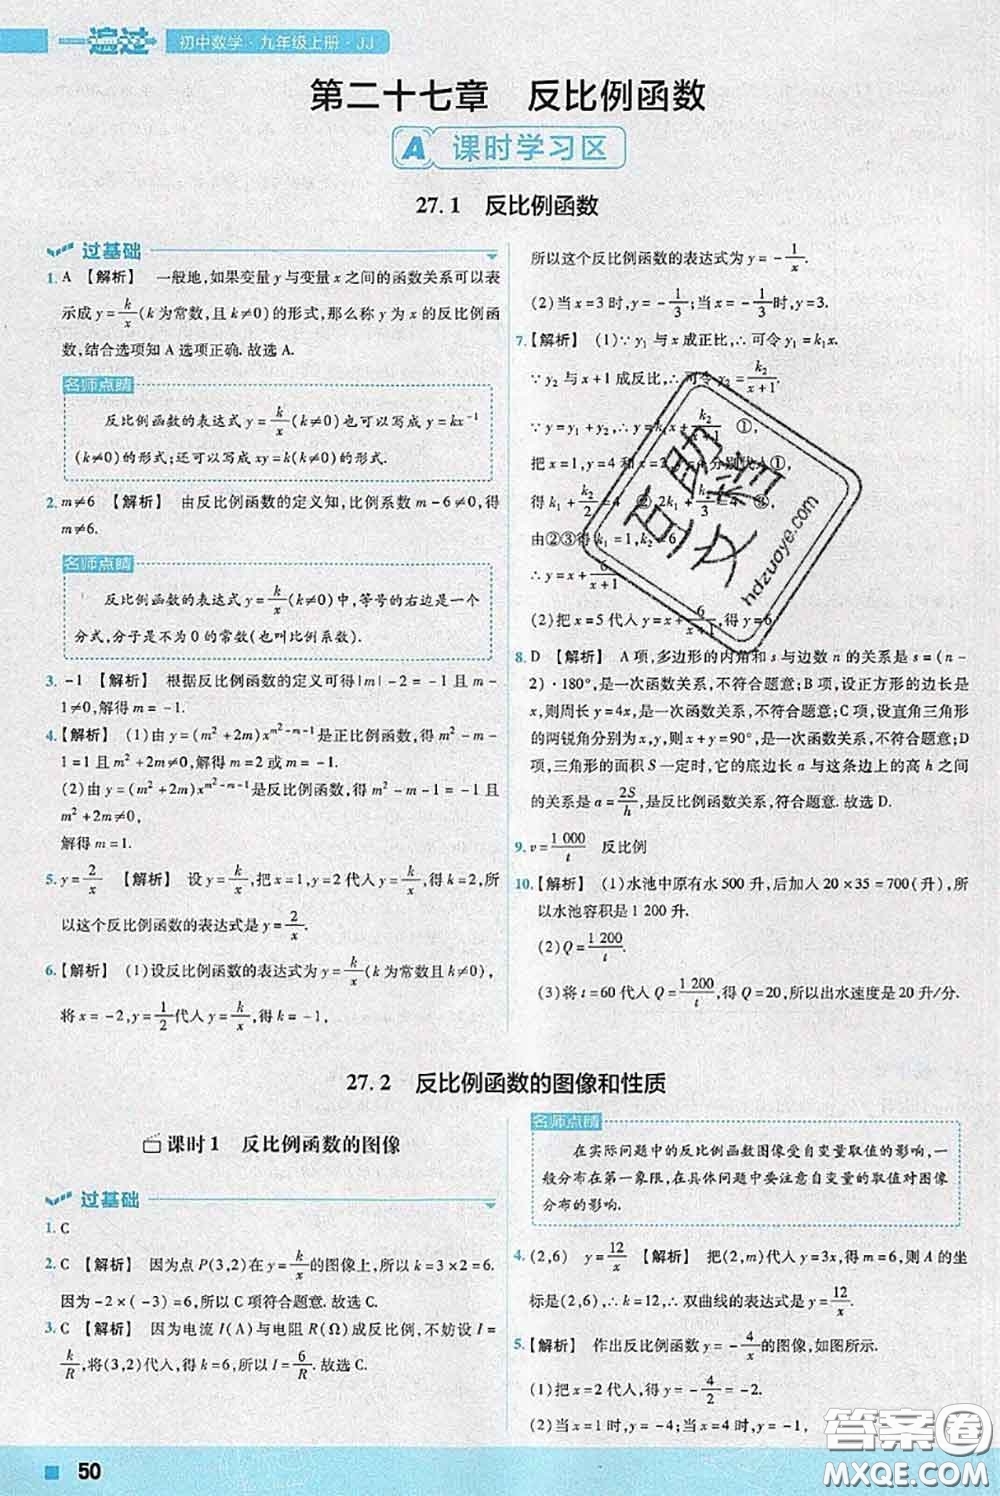 一遍过 初中数学·九年级上册·JJ
第二十七章 反比例函数
A 课时学习区
27.1 反比例函数
过基础
1. A 【解析】 一般地,如果变量 y 与变量 x 之间的函数关系可以表
示成 y=k/x(k 为常数,且 k≠0)的形式,那么称 y 为 x 的反比例函
数,结合选项知 A 选项正确. 故选 A.
名师点睛
反比例函数的表达式 y=k/x(k≠0)也可以写成 y=kx⁻¹
(k≠0)的形式;还可以写成 xy=k(k≠0)的形式.
2. m≠6 【解析】 由反比例函数的定义知,比例系数 m-6≠0,得
m≠6.
名师点睛
反比例函数的表达式 y=k/x(k≠0)中,等号的右边是一个
分式,分子是不为 0 的常数(也叫比例系数).
3. -1 【解析】 根据反比例函数的定义可得|m|-2=-1 且 m-
1≠0,解得 m=-1.
4.【解析】 (1)由 y=(m²+2m)x^(m²-m-1)是正比例函数,得 m²-m-
1=1 且 m²+2m≠0,解得 m=2 或 m=-1.
(2)由 y=(m²+2m)x^(m²-m-1)是反比例函数,得 m²-m-1=-1 且
m²+2m≠0,
解得 m=1.
5. y=2/x 【解析】 设 y=k/x,把 x=1,y=2 代入 y=k/x,得 k=2,所
以这个反比例函数的表达式是 y=2/x.
6.【解析】 (1)设反比例函数的表达式为 y=k/x(k 为常数且 k≠0),
将 x=-2,y=1/2代入 y=k/x,得 k=-1,
所以这个反比例函数的表达式为 y=-1/x.
(2)当 x=3 时,y=-1/3;当 x=-1/3时,y=3.
7.【解析】 (1)∵y₁ 与 x 成正比,∴可令 y₁=k₁x.
∵y₂ 与 x+1 成反比,∴可令 y₂=k₂/(x+1).
∵y=y₁+y₂,∴y=k₁x+k₂/(x+1) ①,
把 x=1,y=4 和 x=2,y=4 分别代入①,
得 k₁+k₂/2=4 ②,2k₁+k₂/3=4 ③,
由②③得 k₁=1,k₂=6,
∴y=x+6/(x+1).
(2)把 x=5 代入 y=x+6/(x+1),得 y=6.
8. D 【解析】 A 项,多边形的内角和 s 与边数 n 的关系是 s=(n-
2)·180°,是一次函数关系,不符合题意;B 项,设正方形的边长是
x,则周长 y=4x,是一次函数关系,不符合题意;C 项,设直角三角形
的两锐角分别为 x,y,则 x+y=90°,是一次函数关系,不符合题意;D
项,三角形的面积 S 一定时,它的底边长 a 与这条边上的高 h 之间
的关系是 a=2S/h,是反比例函数关系,符合题意. 故选 D.
9. v=1 000/t 反比例
10.【解析】 (1)水池中原有水 500 升,后加入 20×35=700(升),所
以水池容积是 1 200 升.
(2)Q=1 200/t.
(3)将 t=60 代入 Q=1 200/t,得 Q=20,所以出水速度是 20 升/分.
27.2 反比例函数的图像和性质
课时 1 反比例函数的图像
过基础
1. C
2. C 【解析】 因为点 P(3,2)在 y=k/x的图像上,所以 k=3×2=6.
因为-2×(-3)=6,所以 C 项符合题意. 故选 C.
3. C 【解析】 因为电流 I(A)与电阻 R(Ω)成反比例,不妨设 I=
k/R,将(3,2)代入,得 k=6,所以 I=6/R. 故选 C.
名师点睛
在实际问题中的反比例函数图像受自变量取值的影响,一
般分布在第一象限,在具体问题中要注意自变量的取值对图像
分布的影响.
4. (2,6) y=12/x 【解析】 把(2,m)代入 y=3x,得 m=6,则 A 的坐
标是(2,6),∴k=12,∴双曲线的表达式是 y=12/x.
5.【解析】 作出反比例函数 y=-4/x的图像,如图所示.
(1)把 x=2 代入,得 y=-4/2=-2.
(2)当 x=1 时,y=-4;当 x=4 时,y=-1,
50
hdzuoye.com
答案圈
MXQE.COM